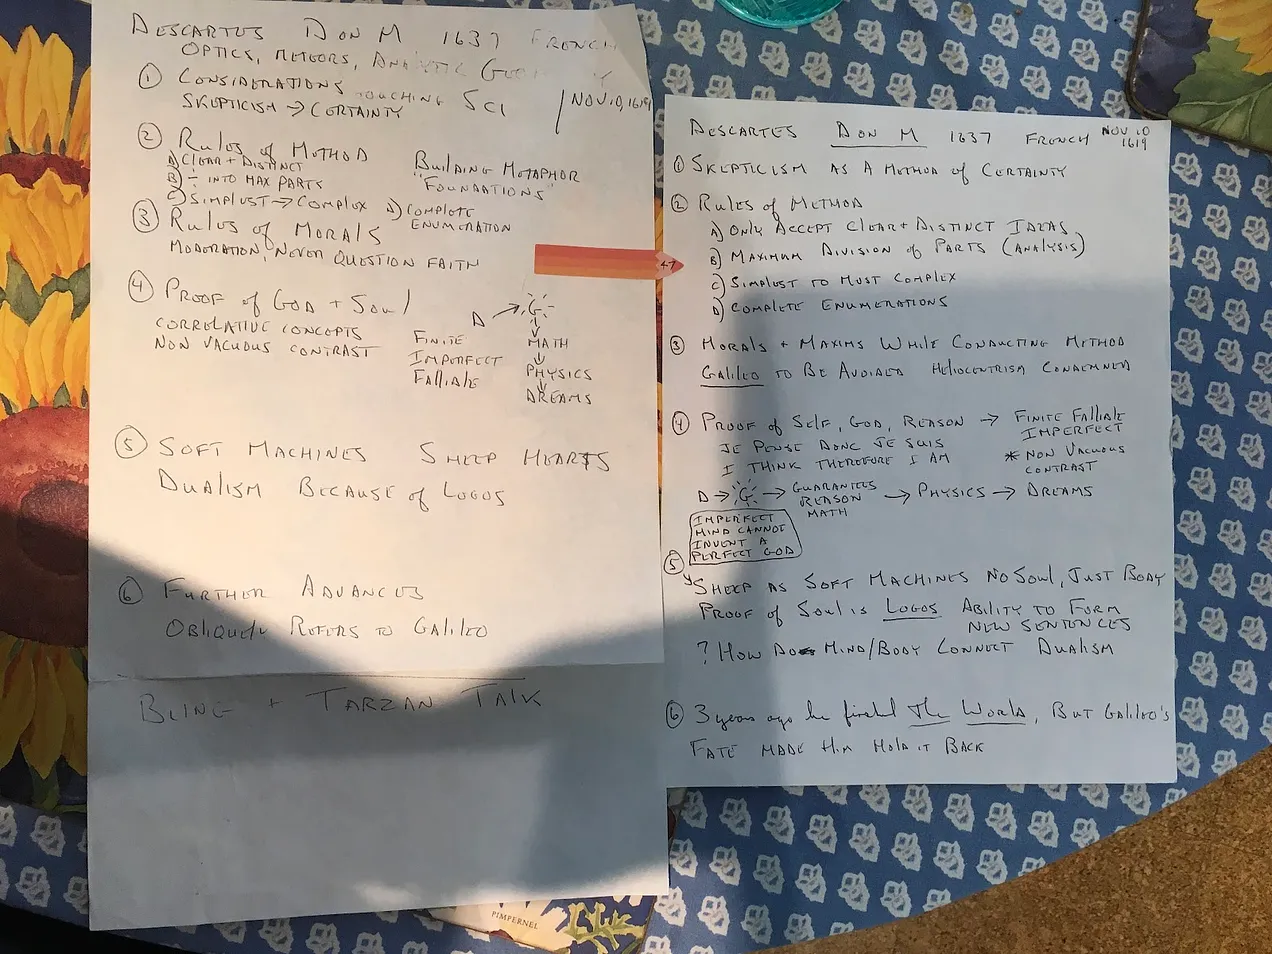 DESCARTES D ON M 1637 FRENCH
OPTICS, METEORS, ANALYTIC
① CONSIDERATIONS TOUCHING SCI
SKEPTICISM → CERTAINTY
NOV 10, 1619
② RULES OF METHOD
A) CLEAR + DISTINCT
B) ÷ INTO MAX PARTS
C) SIMPLEST → COMPLEX
D) COMPLETE
ENUMERATION
BUILDING METAPHOR
"FOUNDATIONS"
③ RULES OF MORALS
MODERATION, NEVER QUESTION FAITH
④ PROOF OF GOD + SOUL
CORRELATIVE CONCEPTS
NON VACUOUS CONTRAST
FINITE
IMPERFECT
FALLIABLE
D → G
↓
MATH
↓
PHYSICS
↓
DREAMS
⑤ SOFT MACHINES SHEEP HEARTS
DUALISM BECAUSE OF LOGOS
⑥ FURTHER ADVANCES
OBLIQUELY REFERS TO GALILEO
BEING + TARZAN TALK
47
DESCARTES D ON M 1637 FRENCH NOV 10
1619
① SKEPTICISM AS A METHOD OF CERTAINTY
② RULES OF METHOD
A) ONLY ACCEPT CLEAR + DISTINCT IDEAS
B) MAXIMUM DIVISION OF PARTS (ANALYSIS)
C) SIMPLEST TO MOST COMPLEX
D) COMPLETE ENUMERATIONS
③ MORALS + MAXIMS WHILE CONDUCTING METHOD
GALILEO TO BE AVOIDED HELIOCENTRISM CONDEMNED
④ PROOF OF SELF, GOD, REASON → FINITE FALLIABLE
IMPERFECT
JE PENSE DONC JE SUIS
I THINK THEREFORE I AM
* NON VACUOUS
CONTRAST
D → G → GUARANTEES
REASON
MATH
→ PHYSICS → DREAMS
IMPERFECT
MIND CANNOT
INVENT A
PERFECT GOD
⑤ SHEEP AS SOFT MACHINES NO SOUL, JUST BODY
PROOF OF SOUL IS LOGOS ABILITY TO FORM
NEW SENTENCES
? HOW DO MIND/BODY CONNECT DUALISM
⑥ 3 years ago he finished The World, BUT GALILEO'S
FATE MADE HIM HOLD IT BACK
PIMPERNEL